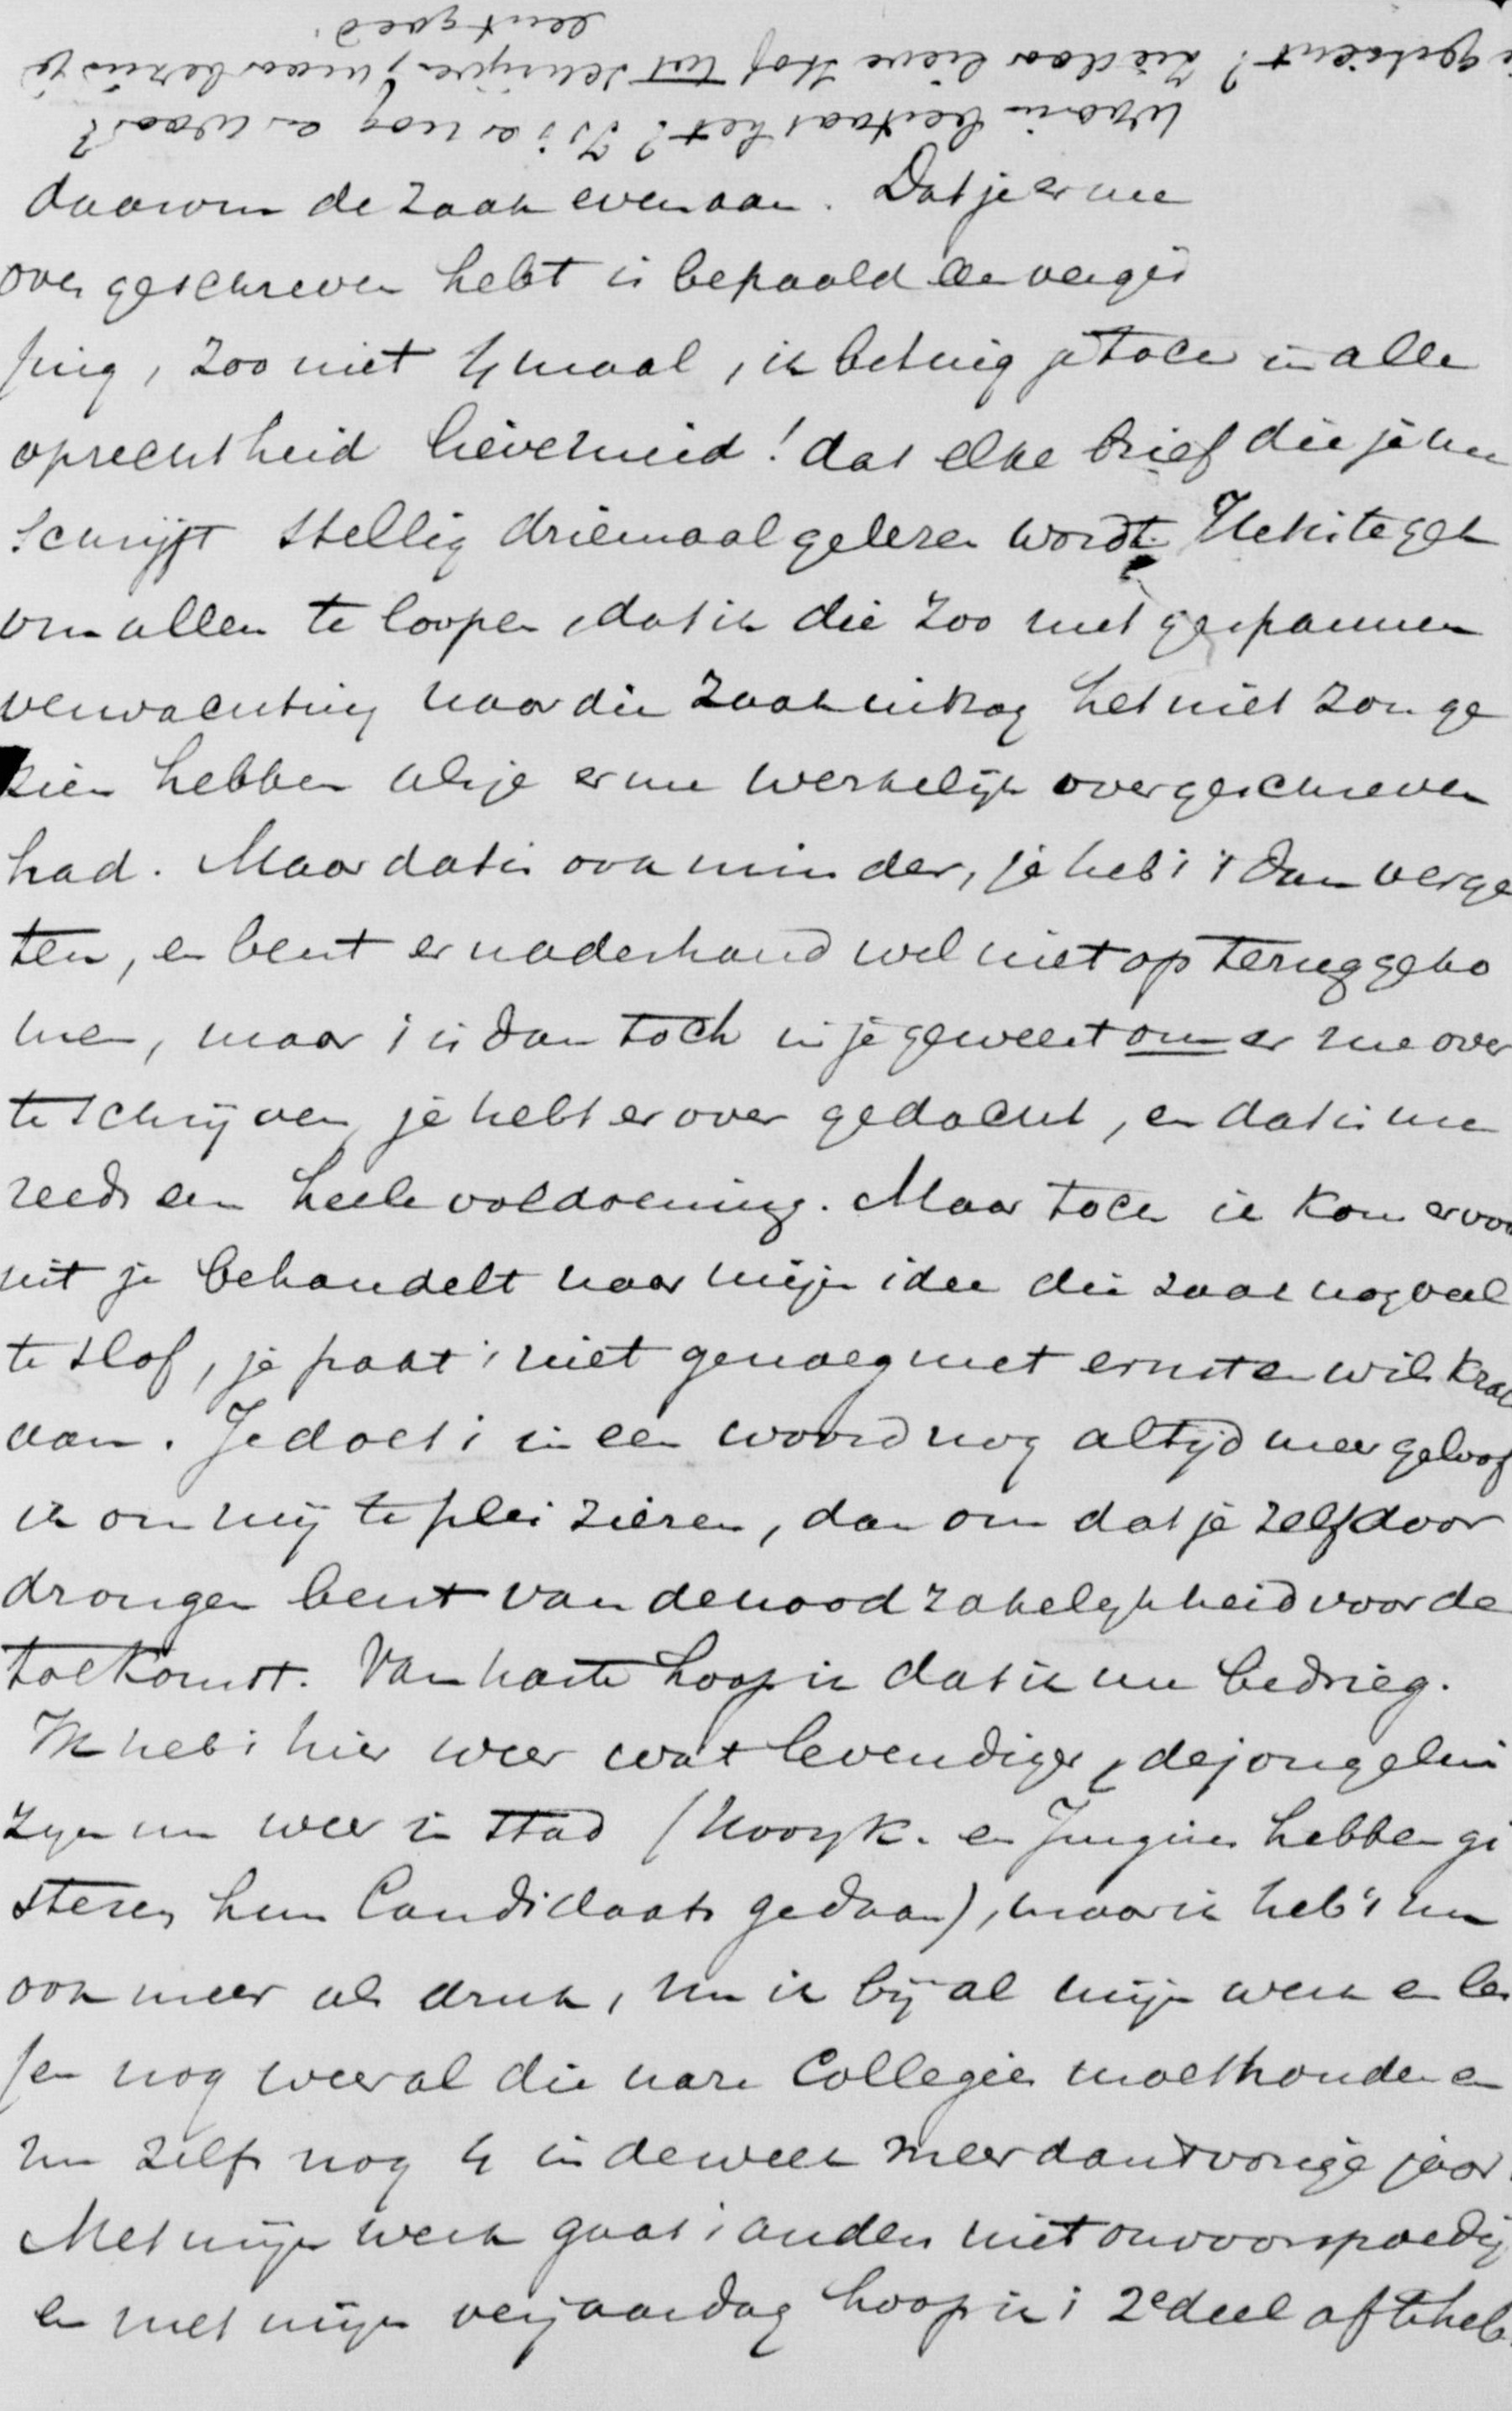 Waarin bestaat het? Is i er nog en waar?
je gediend? Ziedaar lieve stof tot schrijven, maar bezin je
eerst goed.
daarom de zaak even aan. Dat je er me
over geschreven hebt is bepaald een vergis
sing, zoo niet 4 maal, ik betuig je toch in alle
oprechtheid lieve meid! dat elke brief die je me
schrijft stellig driemaal gelezen wordt. Het is te gek
om allen te loopen, dat ik die zoo met gespannen
verwachting naar die zaak uitzag het niet zou ge
zien hebben als je er me werkelijk over geschreven
had. Maar dat is ook minder, je heb i 't dan verge
ten, en bent er naderhand wel niet op teruggeko
men, maar i is dan toch in je geweest om er me over
te schrijven, je hebt er over gedacht, en dat is me
reeds een heele voldoening. Maar toch ik kom er voor
uit je behandelt naar mijn idee die zaak nog veel
te slof, je pakt i niet genoeg met ernst en wils krac
aan. Je doet i in een woord nog altijd meer geloof
ik om mij te pleizieren, dan om dat je zelf door
drongen bent van de noodzakelijkheid voor de
toekomst. Van harte hoop ik dat ik me bedrieg.
Ik heb i hier weer wat levendiger, de jongelui
zijn nu weer in stad ( en hebben gi
steren hun Candidaats gedaan), maar ik heb 't nu
ook meer als druk, nu ik bij al mijn werk en les
sen nog weer al die nare Collegies moet houden en
nu zelfs nog 4 in de week meer dan 't vorige jaar.
Met mijn werk gaat i anders niet onvoorspoedig
en met mijn verjaardag hoop ik i 2e deel af te heb